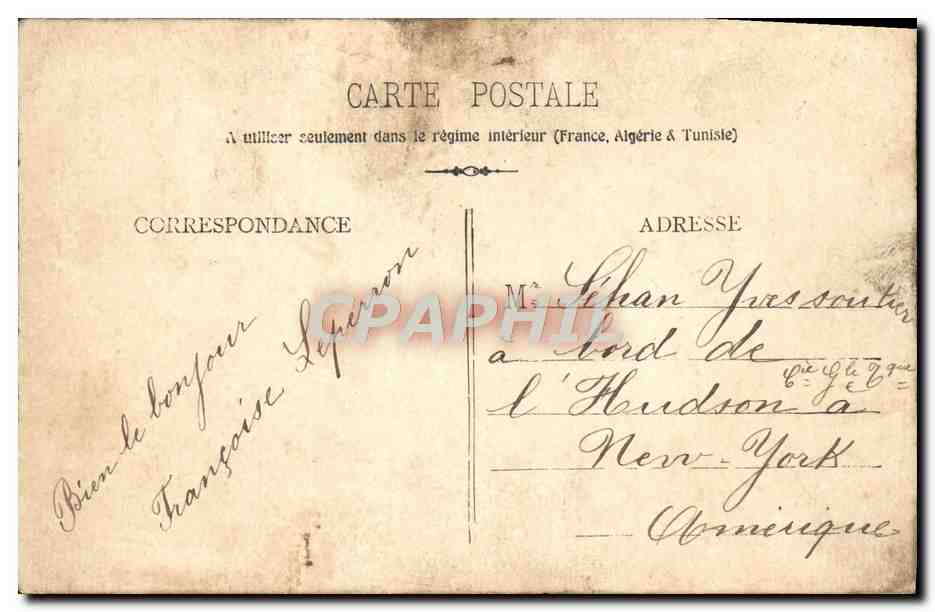 CARTE POSTALE
A utiliser seulement dans le régime intérieur (France, Algérie & Tunisie)
CORRESPONDANCE
Bien le bonjour
Françoise Léperron
ADRESSE
Mr Léhan Yves soutier
a bord de
Cie Gle Tque
l'Hudson a
New-York
Amérique
CPAPHIL